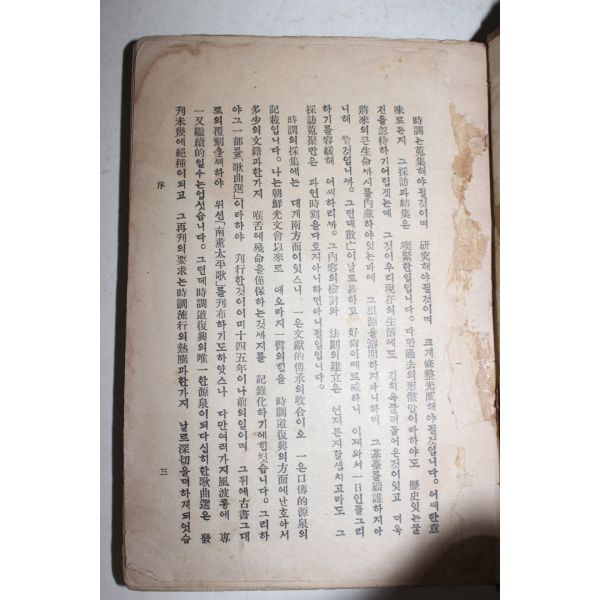 時調는蒐集해야될것이며 硏究해야될것이며 크게修整光闡해야될것입니다。어찌한意
味로든지 그採訪과結集은 喫緊한일입니다。다만過去의形骸말이라하야도 歷史잇는물
전을忽待하기어렵겟는데 그것이우리現在의生活에도 깁히욱쿨며들어온것이잇고 더욱
將來의큰生命까지를內藏하야잇는바에 그根源을溯期하지아니하며 그基臺를顧護하지아
니해 쓸것입니까。그런데散亡이날로甚하고 好尙이때로減하니 이제와서一日인들그리
하기를容緩해 어찌하리까。그內容의檢討와 法則의建立은 언제든지할셈치고라도 그
採訪蒐聚만은 과연時刻을다토지아니하면아니될일입니다。
時調의採集에는 대개兩方面이잇스니 一은文獻的傳承의收合이오 一은口傳的源泉의
記載입니다。나는朝鮮光文會以來로 애오라지一臂의힘을 時調道復興의方面에난호아서
多少의文籍과한가지 喉舌에殘命을僅保하는것까지를 記錄化하기에힘썻습니다。그리하
야그一部를「歌曲選」이라하야 刊行한것이이미十四五年이나前의일이며 그뒤에古書그대
로의覆刻을꾀하야 위선「南薰太平歌」를刊布하기도하얏스나 다만여러가지風波통에 專
一又繼續的일수는업섯습니다。그런데時調道復興의唯一한源泉이되다십히한歌曲選은 發
刊未幾에絕種이되고 그再刊의要求는時調流行의熱騰과한가지 날로深切을더하게되엇습
序
三